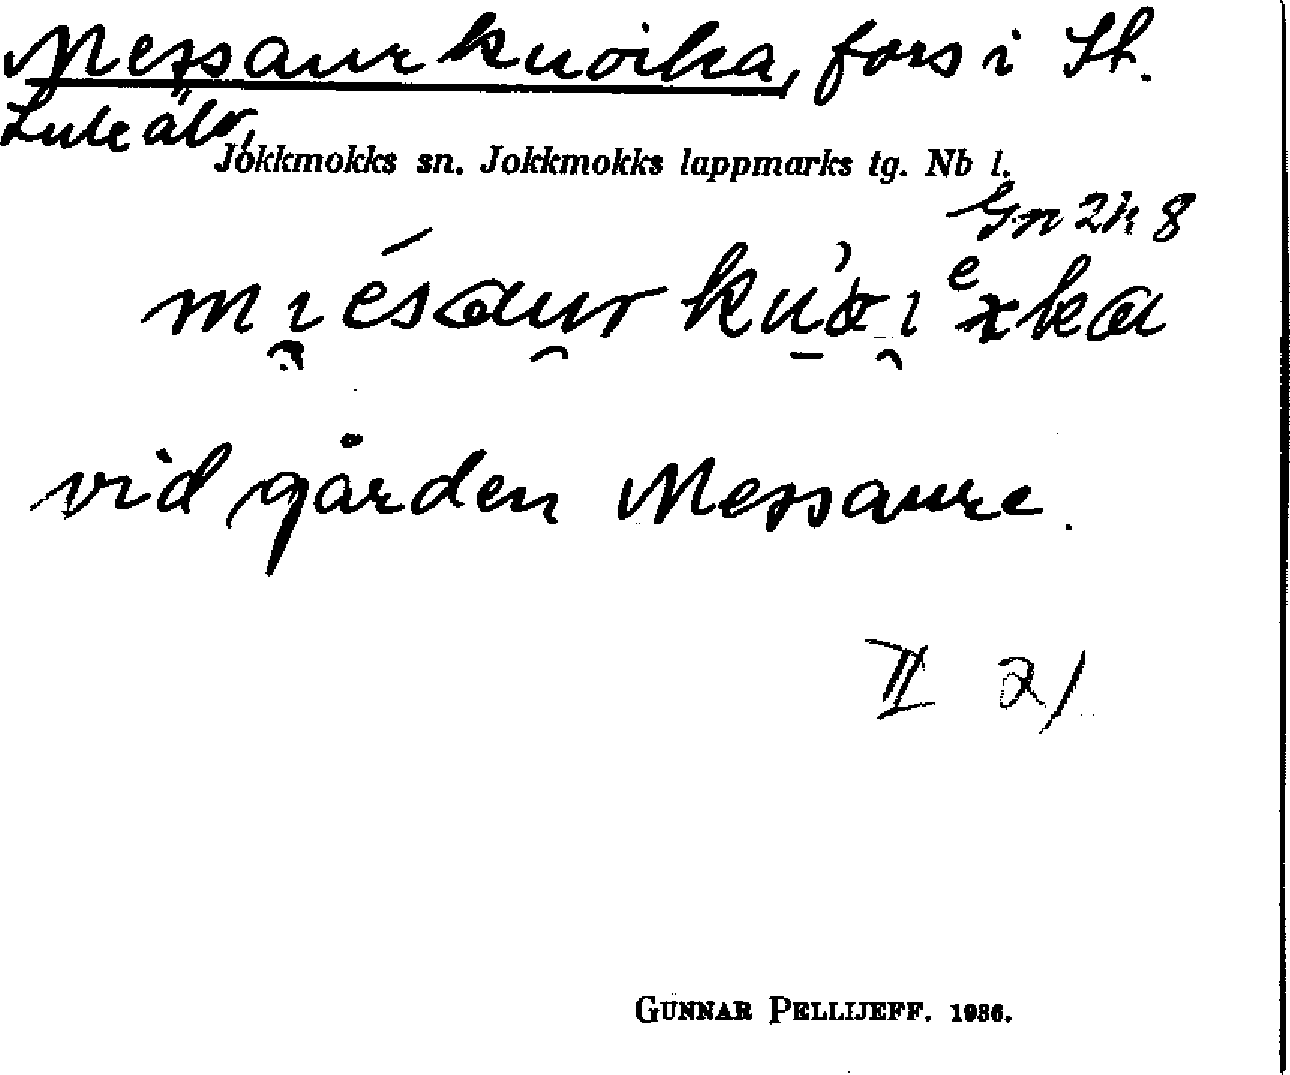 Messaurkuoika, fors i St.
Lule älv,
Jokkmokks sn. Jokkmokks lappmarks tg. Nb l.
Gn 2h 8
vid gården Messaure.
II 21
GUNNAR PELLIJEFF. 1936.